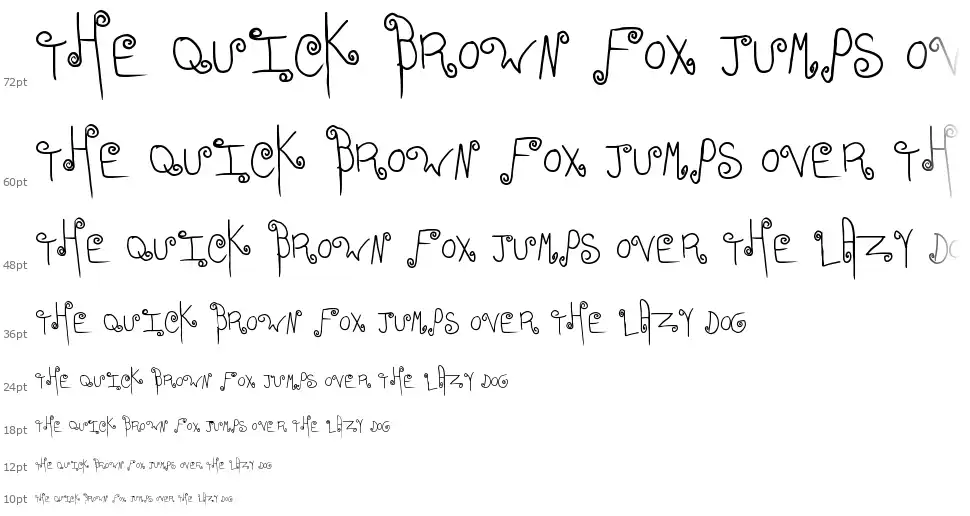 72pt THE QUICK BROWN FOX JUMPS OV
60pt THE QUICK BROWN FOX JUMPS OVER TH
48pt THE QUICK BROWN FOX JUMPS OVER THE LAZY DO
36pt THE QUICK BROWN FOX JUMPS OVER THE LAZY DOG
24pt THE QUICK BROWN FOX JUMPS OVER THE LAZY DOG
18pt THE QUICK BROWN FOX JUMPS OVER THE LAZY DOG
12pt THE QUICK BROWN FOX JUMPS OVER THE LAZY DOG
10pt THE QUICK BROWN FOX JUMPS OVER THE LAZY DOG